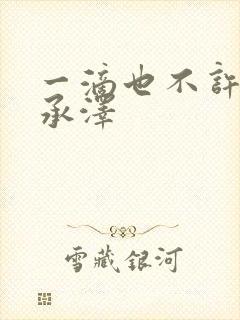 一滴也不许
承泽
雪藏银河